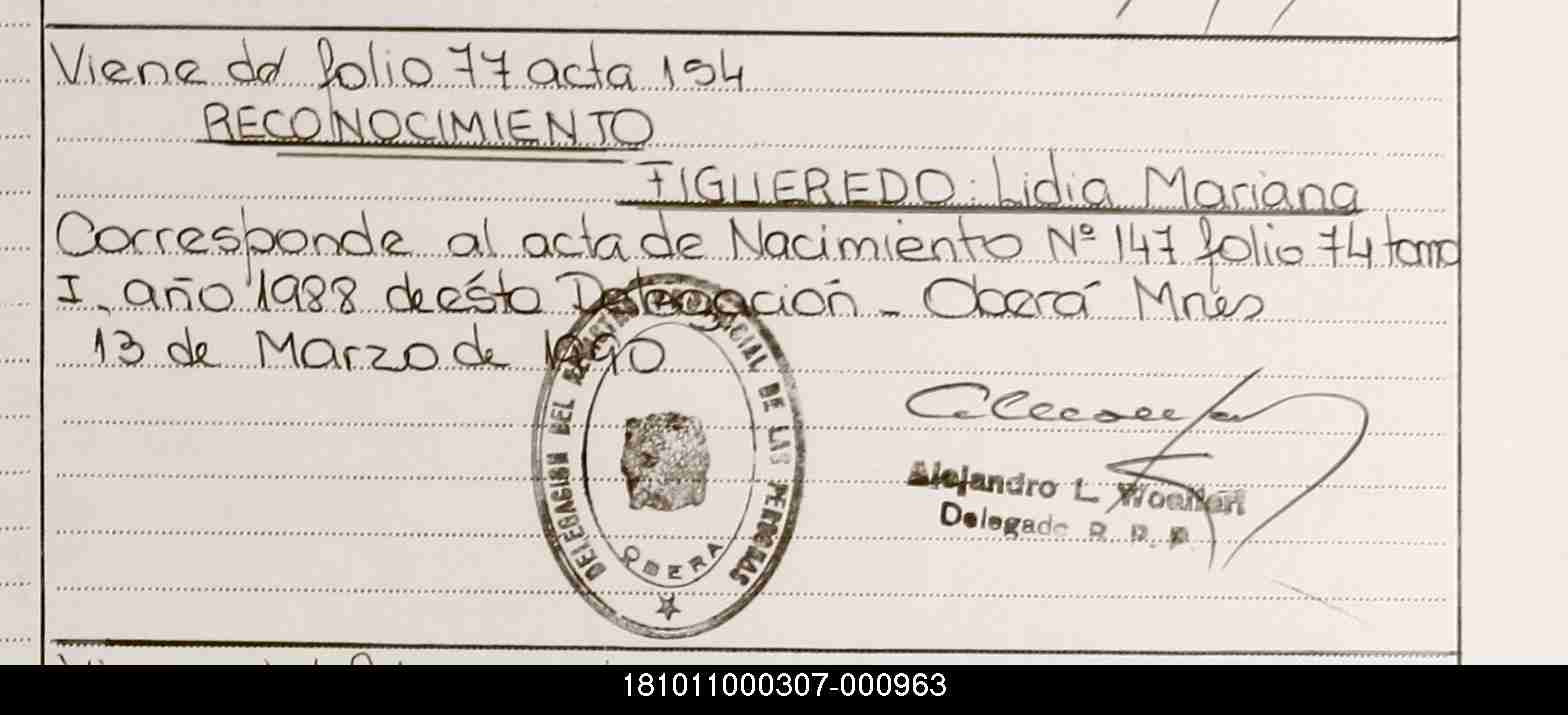 Viene del folio 77 acta 154
RECONOCIMIENTO
FIGUEREDO: Lidia Mariana
Corresponde al acta de Nacimiento Nº 147 folio 74 tomo
I. año 1988 de ésta Delegación - Oberá Mnes
13 de Marzo de 1990
DELEGACION DEL REGISTRO PROVINCIAL DE LAS PERSONAS
OBERA
Alejandro L.
Delegado R. P. P.
181011000307-000963